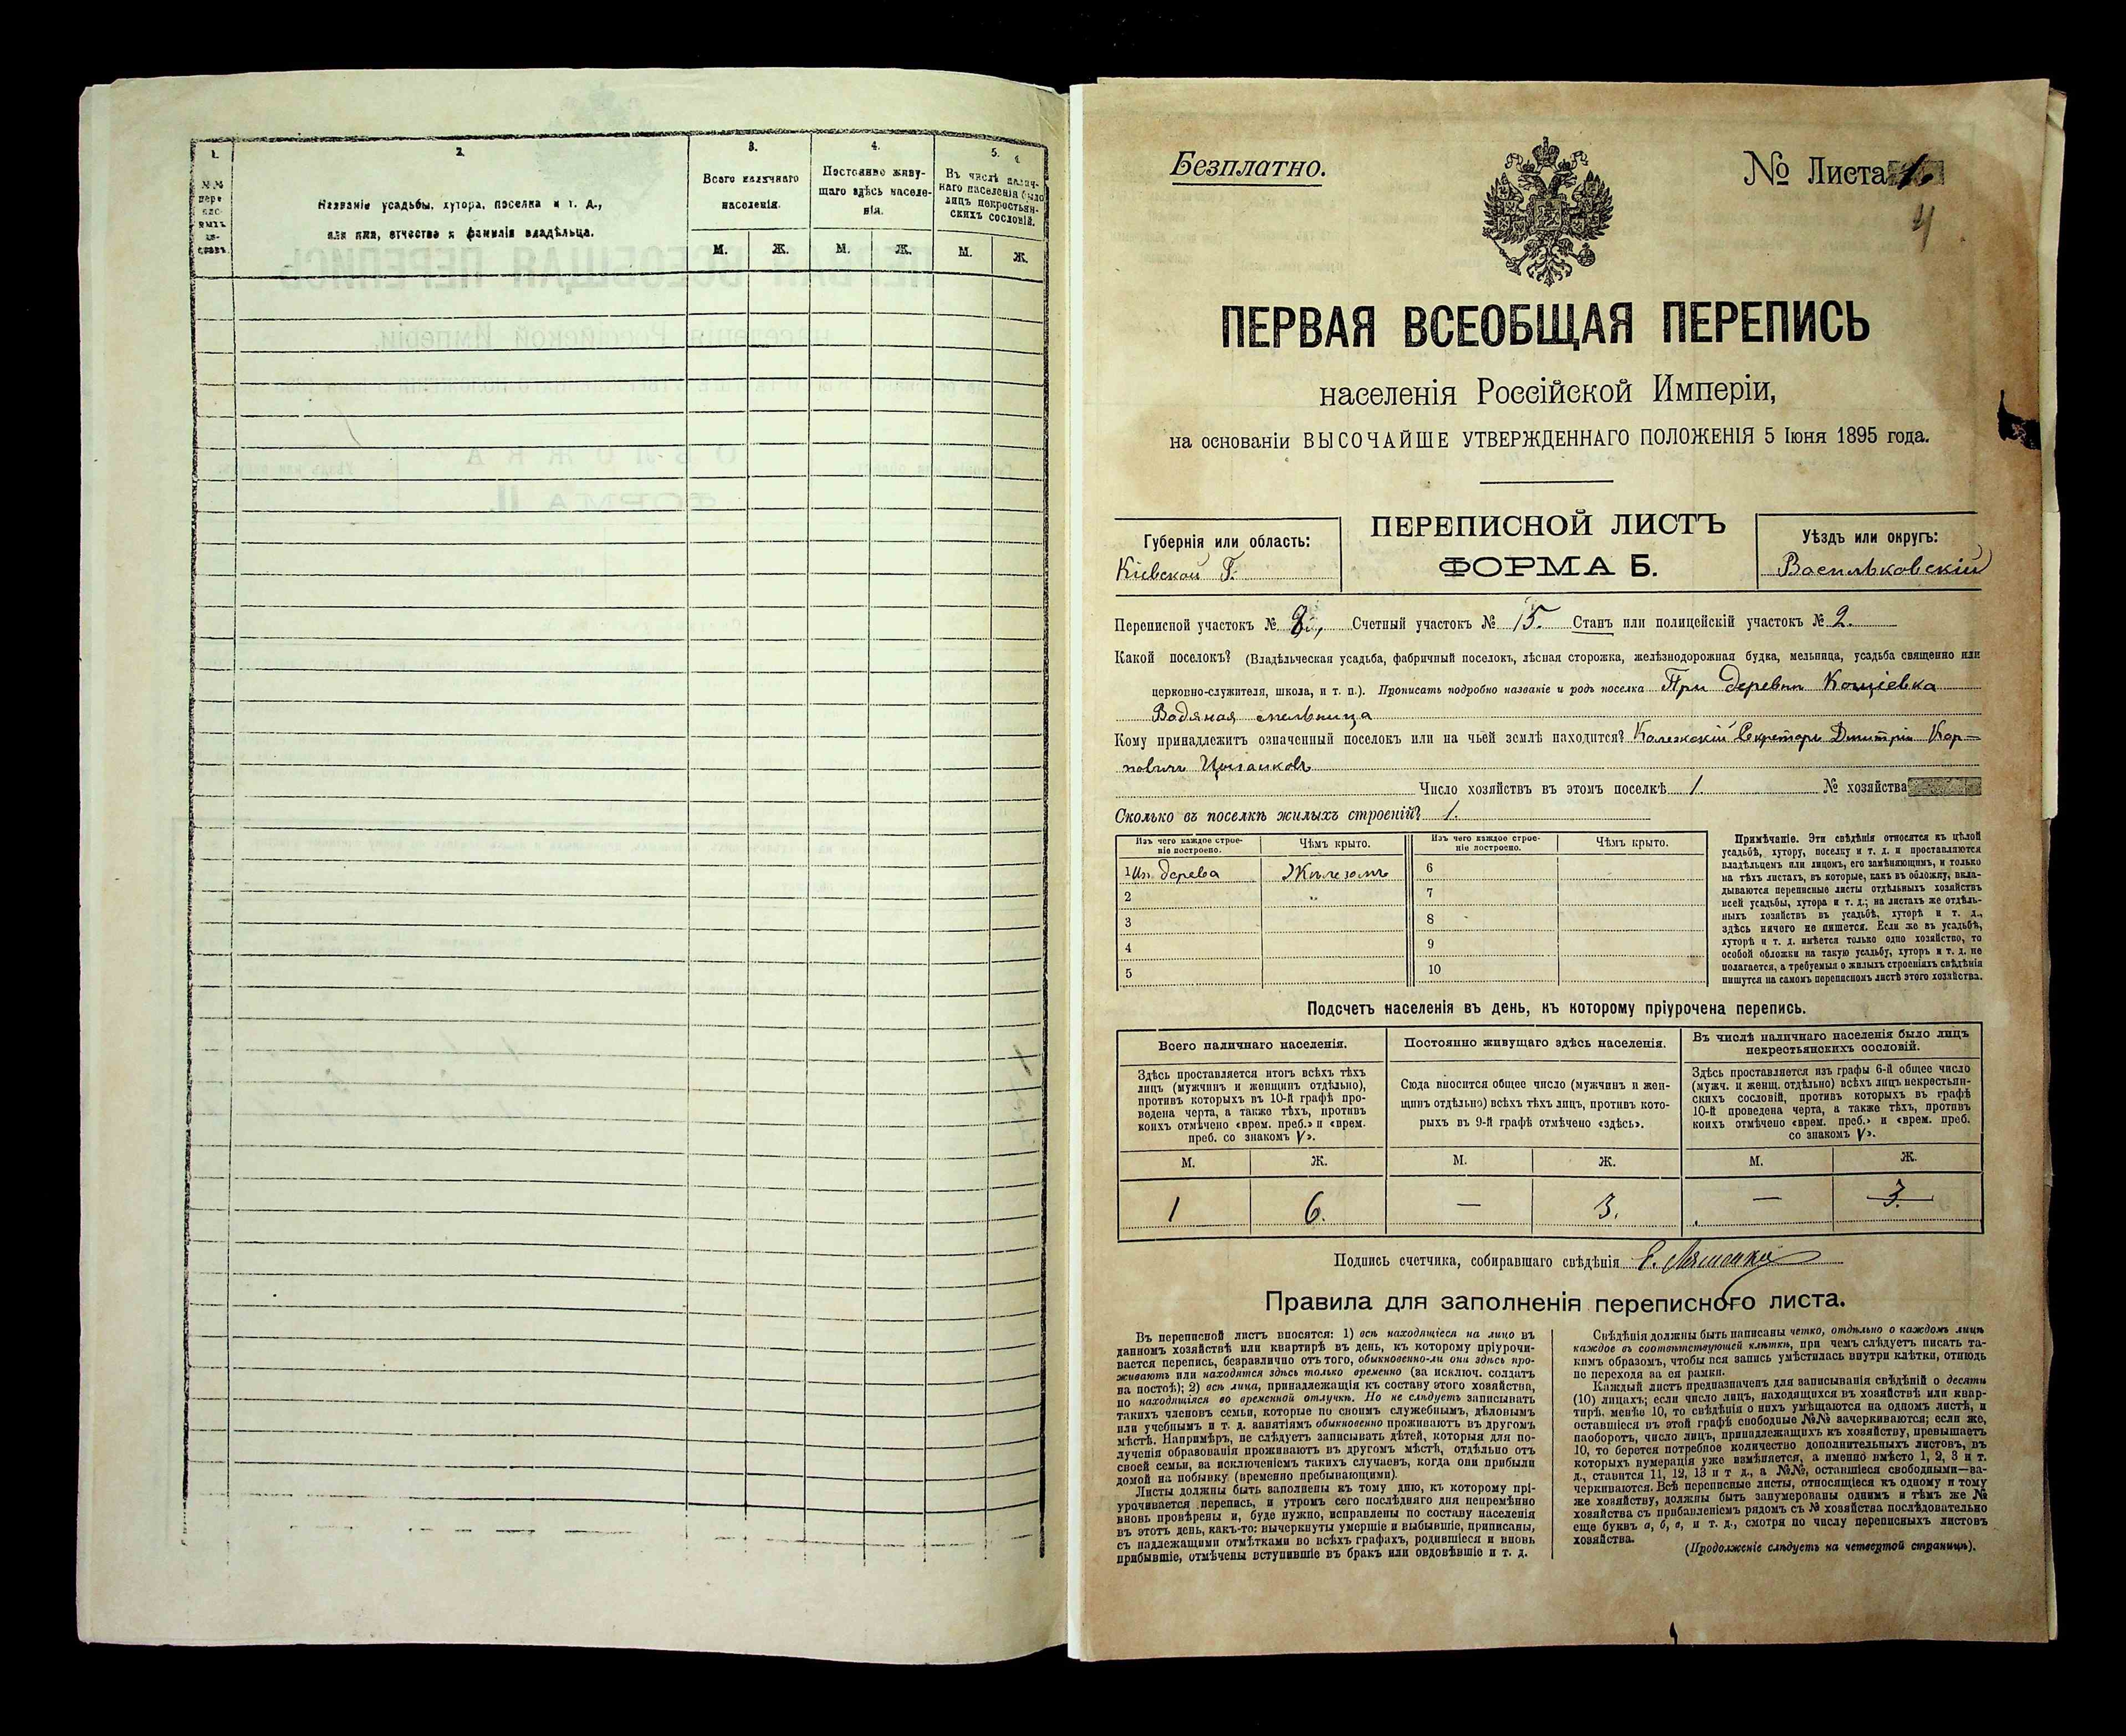 1.
2.
3.
4.
5.
4
№№ пере пис- ныхъ ли- стовъ.
Названіе усадьбы, хутора, поселка и т. д.,
или имя, отчество и фамилія владѣльца.
Всего наличнаго
населенія.
Постоянно живу-
щаго здѣсь населе-
нія.
Въ числѣ налич-
наго населенія было
лицъ некрестьян-
скихъ сословій.
М. Ж. М. Ж. М. Ж.
Безплатно.
№ Листа 1.
4
ПЕРВАЯ ВСЕОБЩАЯ ПЕРЕПИСЬ
населенія Россійской Имперіи,
на основаніи ВЫСОЧАЙШЕ УТВЕРЖДЕННАГО ПОЛОЖЕНІЯ 5 Іюня 1895 года.
Губернія или область:
Кіевской Г.
ПЕРЕПИСНОЙ ЛИСТЪ
ФОРМА Б.
Уѣздъ или округъ:
Васильковскій
Переписной участокъ № 8, Счетный участокъ № 15. Станъ или полицейскій участокъ № 2.
Какой поселокъ? (Владѣльческая усадьба, фабричный поселокъ, лѣсная сторожка, желѣзнодорожная будка, мельница, усадьба священно или
церковно-служителя, школа, и т. п.). Прописать подробно названіе и родъ поселка При деревни Кощіевка
Водяная мельница
Кому принадлежитъ означенный поселокъ или на чьей землѣ находится? Колежскій Секретарь Дмитрій Кар-
повичъ Цыганковъ
Число хозяйствъ въ этомъ поселкѣ 1. № хозяйства
Сколько въ поселкѣ жилыхъ строеній? 1.
Изъ чего каждое строе-
ніе построено.
Чѣмъ крыто.
Изъ чего каждое строе-
ніе построено.
Чѣмъ крыто.
1 Из. дерева Желѣзомъ 6
2 " 7
3 8
4 9
5 10
Примѣчаніе. Эти свѣдѣнія относятся къ цѣлой
усадьбѣ, хутору, поселку и т. д. и проставляются
владѣльцемъ или лицомъ, его замѣняющимъ, и только
на тѣхъ листахъ, въ которые, какъ въ обложку, вкла-
дываются переписные листы отдѣльныхъ хозяйствъ
всей усадьбы, хутора и т. д.; на листахъ же отдѣль-
ныхъ хозяйствъ въ усадьбѣ, хуторѣ и т. д.,
здѣсь ничего не пишется. Если же въ усадьбѣ,
хуторѣ и т. д. имѣется только одно хозяйство, то
особой обложки на такую усадьбу, хуторъ и т. д. не
полагается, а требуемыя о жилыхъ строеніяхъ свѣдѣнія
пишутся на самомъ переписномъ листѣ этого хозяйства.
Подсчетъ населенія въ день, къ которому пріурочена перепись.
Всего наличнаго населенія.
Постоянно живущаго здѣсь населенія.
Въ числѣ наличнаго населенія было лицъ
некрестьянскихъ сословій.
Здѣсь проставляется итогъ всѣхъ тѣхъ
лицъ (мужчинъ и женщинъ отдѣльно),
противъ которыхъ въ 10-й графѣ про-
ведена черта, а также тѣхъ, противъ
коихъ отмѣчено «врем. преб.» и «врем.
преб. со знакомъ V».
Сюда вносится общее число (мужчинъ и жен-
щинъ отдѣльно) всѣхъ тѣхъ лицъ, противъ кото-
рыхъ въ 9-й графѣ отмѣчено «здѣсь».
Здѣсь проставляется изъ графы 6-й общее число
(мужч. и женщ. отдѣльно) всѣхъ лицъ некрестьян-
скихъ сословій, противъ которыхъ въ графѣ
10-й проведена черта, а также тѣхъ, противъ
коихъ отмѣчено «врем. преб.» и «врем. преб.
со знакомъ V».
М. Ж. М. Ж. М. Ж.
1 6. — 3. — 3.
Подпись счетчика, собиравшаго свѣдѣнія
Правила для заполненія переписного листа.
Въ переписной листъ вносятся: 1) всѣ находящіеся на лицо въ
данномъ хозяйствѣ или квартирѣ въ день, къ которому пріурочи-
вается перепись, безразлично отъ того, обыкновенно-ли они здѣсь про-
живаютъ или находятся здѣсь только временно (за исключ. солдатъ
на постоѣ); 2) всѣ лица, принадлежащія къ составу этого хозяйства,
но находящіяся во временной отлучкѣ. Но не слѣдуетъ записывать
такихъ членовъ семьи, которые по своимъ служебнымъ, дѣловымъ
или учебнымъ и т. д. занятіямъ обыкновенно проживаютъ въ другомъ
мѣстѣ. Напримѣръ, не слѣдуетъ записывать дѣтей, которыя для по-
лученія образованія проживаютъ въ другомъ мѣстѣ, отдѣльно отъ
своей семьи, за исключеніемъ такихъ случаевъ, когда они прибыли
домой на побывку (временно пребывающими).
Листы должны быть заполнены къ тому дню, къ которому прі-
урочивается перепись, и утромъ сего послѣдняго дня непремѣнно
вновь провѣрены и, буде нужно, исправлены по составу населенія
въ этотъ день, какъ-то: вычеркнуты умершіе и выбывшіе, приписаны,
съ надлежащими отмѣтками во всѣхъ графахъ, родившіеся и вновь
прибывшіе, отмѣчены вступившіе въ бракъ или овдовѣвшіе и т. д.
Свѣдѣнія должны быть написаны четко, отдѣльно о каждомъ лицѣ
каждое въ соотвѣтствующей клѣткѣ, при чемъ слѣдуетъ писать та-
кимъ образомъ, чтобы вся запись умѣстилась внутри клѣтки, отнюдь
не переходя за ея рамки.
Каждый листъ предназначенъ для записыванія свѣдѣній о десяти
(10) лицахъ; если число лицъ, находящихся въ хозяйствѣ или квар-
тирѣ, менѣе 10, то свѣдѣнія о нихъ умѣщаются на одномъ листѣ, и
оставшіеся въ этой графѣ свободные №№ зачеркиваются; если же,
наоборотъ, число лицъ, принадлежащихъ къ хозяйству, превышаетъ
10, то берется потребное количество дополнительныхъ листовъ, въ
которыхъ нумерація уже измѣняется, а именно вмѣсто 1, 2, 3 и т.
д., ставится 11, 12, 13 и т д., а №№, оставшіеся свободными—за-
черкиваются. Всѣ переписные листы, относящіеся къ одному и тому
же хозяйству, должны быть занумерованы однимъ и тѣмъ же №
хозяйства съ прибавленіемъ рядомъ съ № хозяйства послѣдовательно
еще буквъ а, б, в, и т. д., смотря по числу переписныхъ листовъ
хозяйства.
(Продолженіе слѣдуетъ на четвертой страницѣ).